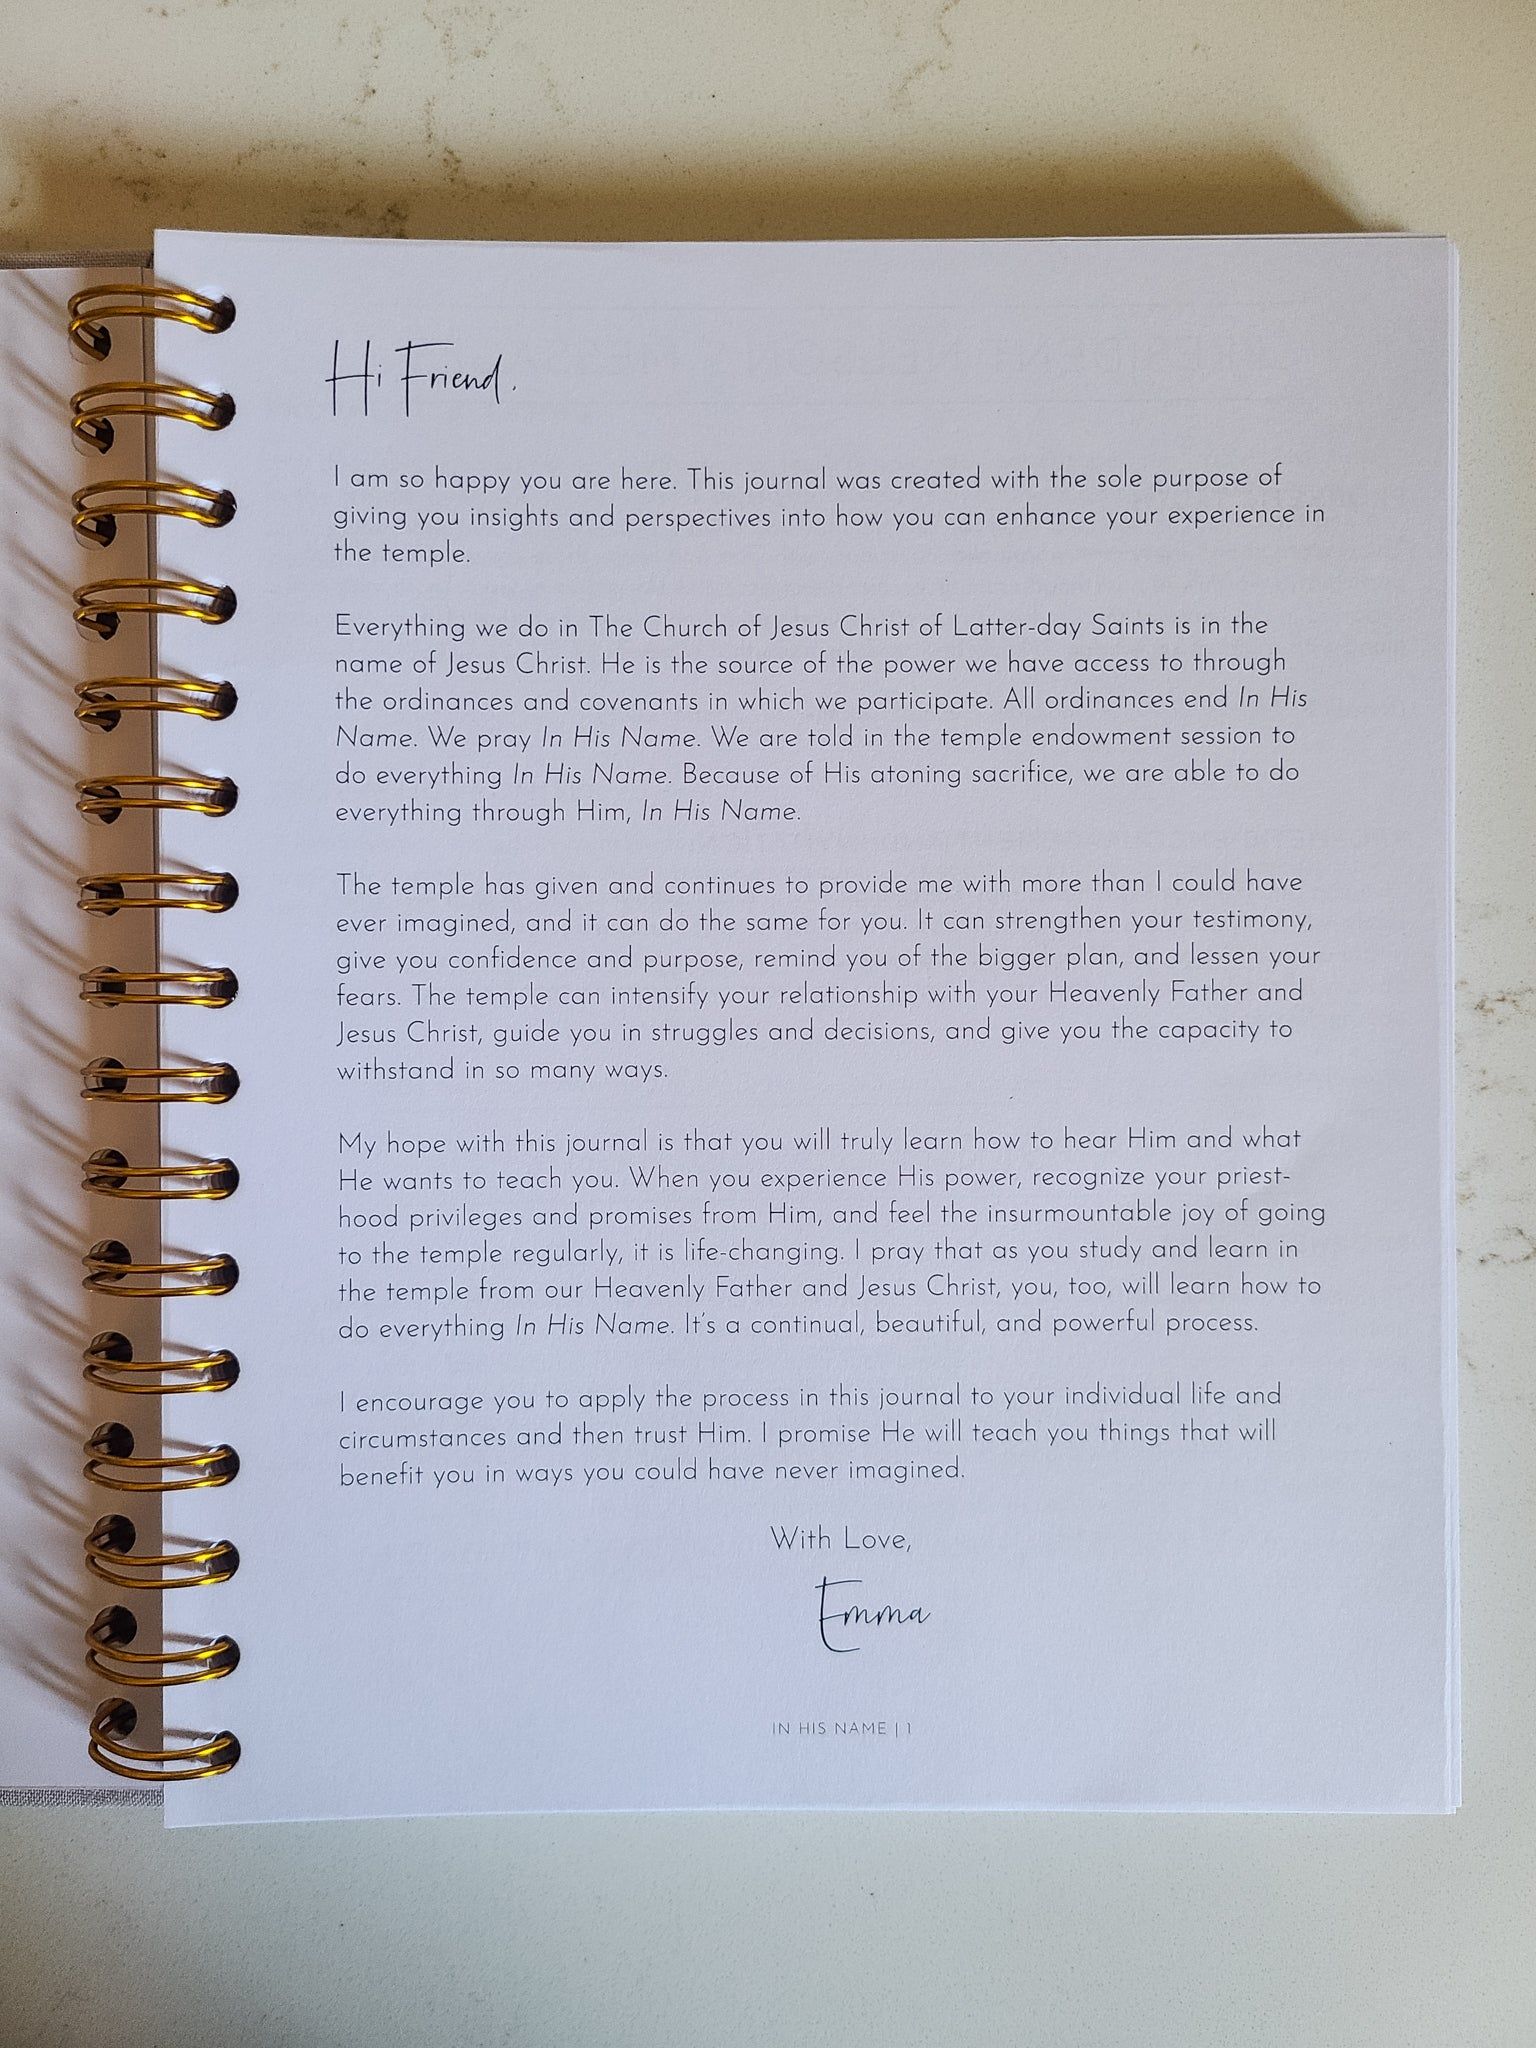 Hi Friend,
I am so happy you are here. This journal was created with the sole purpose of
giving you insights and perspectives into how you can enhance your experience in
the temple.
Everything we do in The Church of Jesus Christ of Latter-day Saints is in the
name of Jesus Christ. He is the source of the power we have access to through
the ordinances and covenants in which we participate. All ordinances end In His
Name. We pray In His Name. We are told in the temple endowment session to
do everything In His Name. Because of His atoning sacrifice, we are able to do
everything through Him, In His Name.
The temple has given and continues to provide me with more than I could have
ever imagined, and it can do the same for you. It can strengthen your testimony,
give you confidence and purpose, remind you of the bigger plan, and lessen your
fears. The temple can intensify your relationship with your Heavenly Father and
Jesus Christ, guide you in struggles and decisions, and give you the capacity to
withstand in so many ways.
My hope with this journal is that you will truly learn how to hear Him and what
He wants to teach you. When you experience His power, recognize your priest-
hood privileges and promises from Him, and feel the insurmountable joy of going
to the temple regularly, it is life-changing. I pray that as you study and learn in
the temple from our Heavenly Father and Jesus Christ, you, too, will learn how to
do everything In His Name. It's a continual, beautiful, and powerful process.
I encourage you to apply the process in this journal to your individual life and
circumstances and then trust Him. I promise He will teach you things that will
benefit you in ways you could have never imagined.
With Love,
Emma
IN HIS NAME | 1